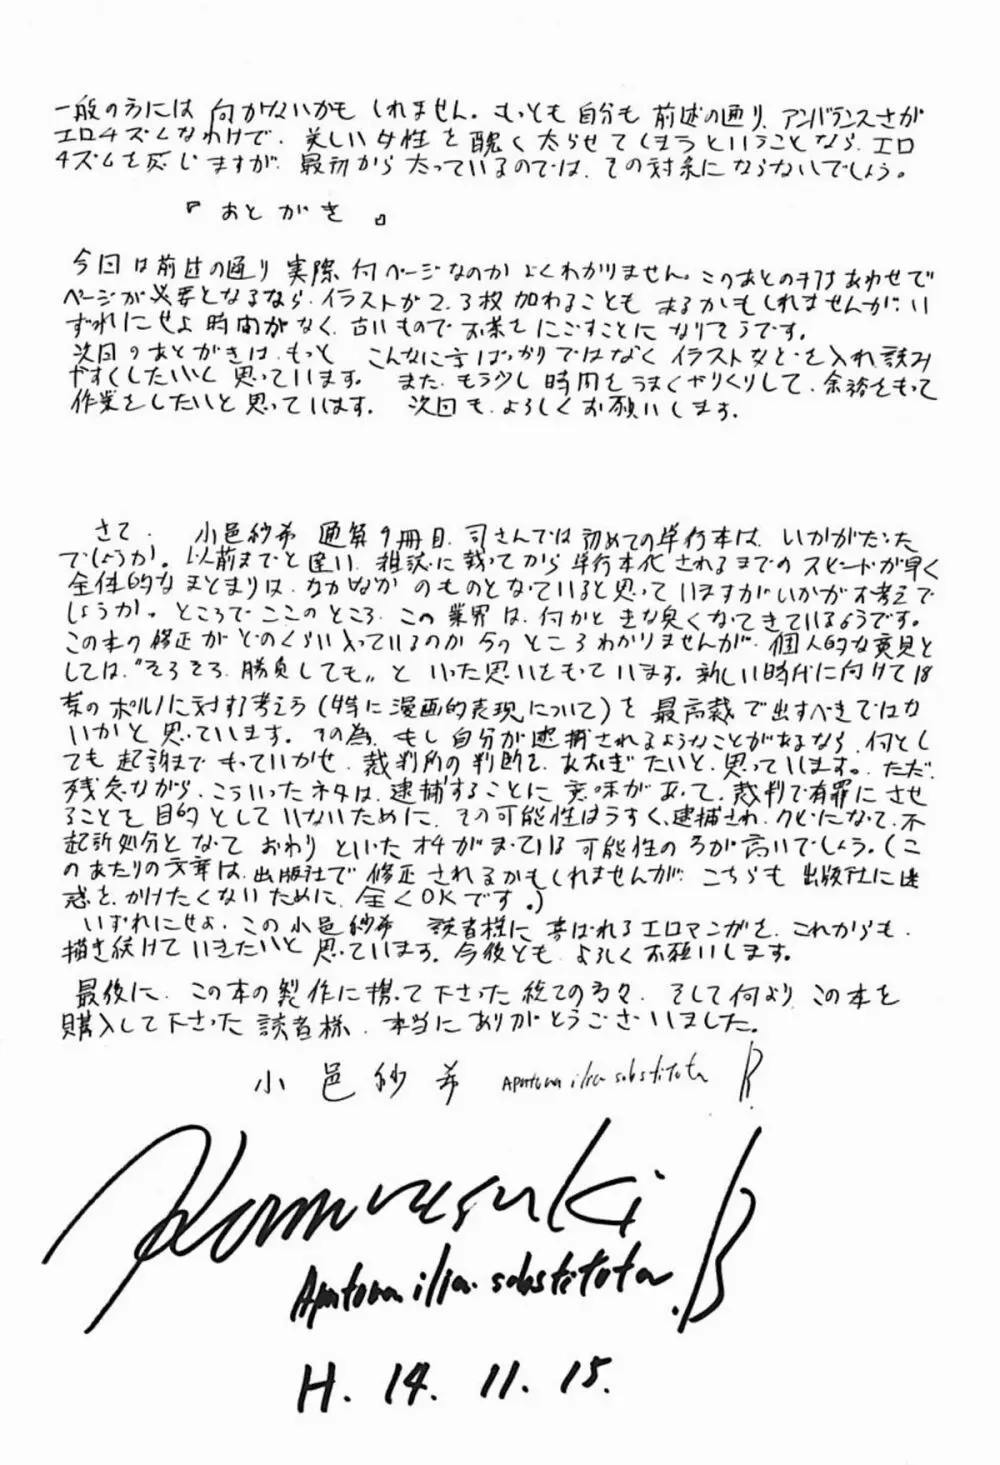 一般の方には向かないかもしれません。もっとも自分も前述の通り、アンバランスさが
エロチズムなわけで、美しい女性を醜く太らせてしまうということなら、エロ
チズムを感じますが、最初から太っているのでは、その対象にならないでしょう。
『おとがき』
今回は前述の通り実際何ページなのかよくわかりません。このあとの打ちあわせで
ページが必要となるなら、イラストが2、3枚加わることもあるかもしれませんが、い
ずれにせよ時間がなく、古いものでお茶をにごすことになりそうです。
次回のあとがきは、もっとこんなに字ばっかりではなくイラストなどを入れ読み
やすくしたいと思っています。また、もう少し時間をうまくやりくりして、余裕をもって
作業をしたいと思っています。次回も、よろしくお願いします。
さて、小邑紗希通算9冊目、司さんでは初めての単行本は、いかがだった
でしょうか。以前までと違い、雑誌に載ってから単行本化されるまでのスピードが早く
全体的なまとまりは、なかなかのものとなっていると思っていますがいかがお考えで
しょうか。ところでここのところ、この業界は、何かときな臭くなってきているようです。
この本の修正がどのくらい入っているのか今のところわかりませんが、個人的な意見と
しては、“そろそろ、勝負しても〟といった思いをもっています。新しい時代に向けて18
禁のポルノに対する考え方(特に漫画的表現について)を最高裁で出すべきではな
いかと思っています。その為、もし自分が逮捕されるようなことがあるなら、何とし
ても起訴までもっていかせ、裁判所の判断を、あおぎたいと、思っています。ただ、
残念ながら、こういったネタは、逮捕することに意味があって、裁判で有罪にさせ
ることを目的としていないために、その可能性はうすく、逮捕され、クビになって、不
起訴処分となっておわりといったオチがまっている可能性の方が高いでしょう。(こ
のあたりの文章は、出版社で修正されるかもしれませんが、こちらも出版社に迷
惑を、かけたくないために、全くOKです。)
いずれにせよ、この小邑紗希 読者様に喜ばれるエロマンガを、これからも、
描き続けていきたいと思っています。今後とも、よろしくお願いします。
最後に、この本の製作に携って下さった総ての方々、そして何より、この本を
購入して下さった読者様、本当にありがとうございました。
小邑紗希 Apatura ilia substituta B.
Komurasaki
Apatura ilia substituta .B
H. 14. 11. 15.